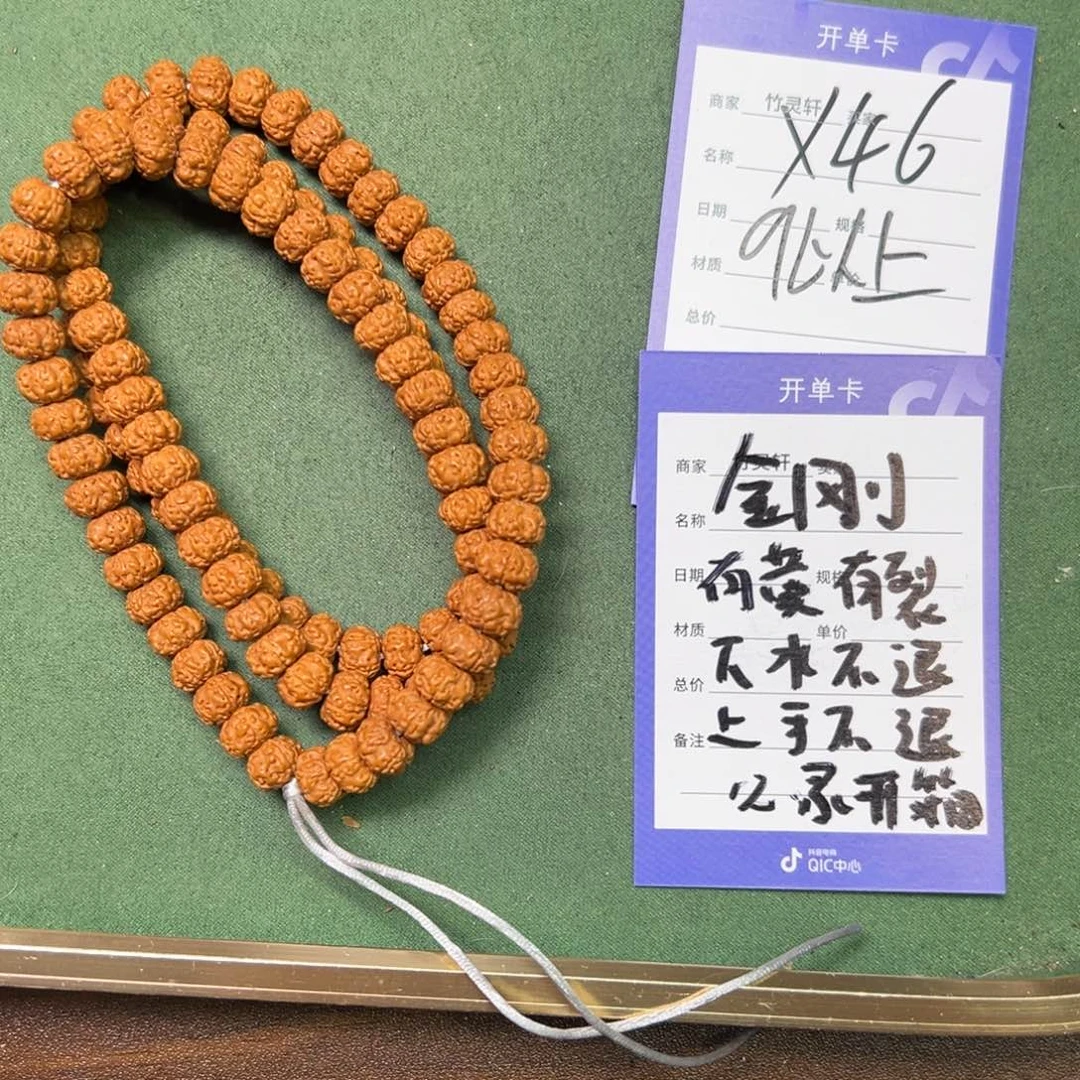 开单卡
商家 竹灵轩
名称
X46
日期 规格
以上
材质
总价
开单卡
商家 灵轩
金刚
名称
日期 规格
有 有裂
材质 单价
下水不退
总价
上手不退
备注
录开箱
抖音电商
QIC中心